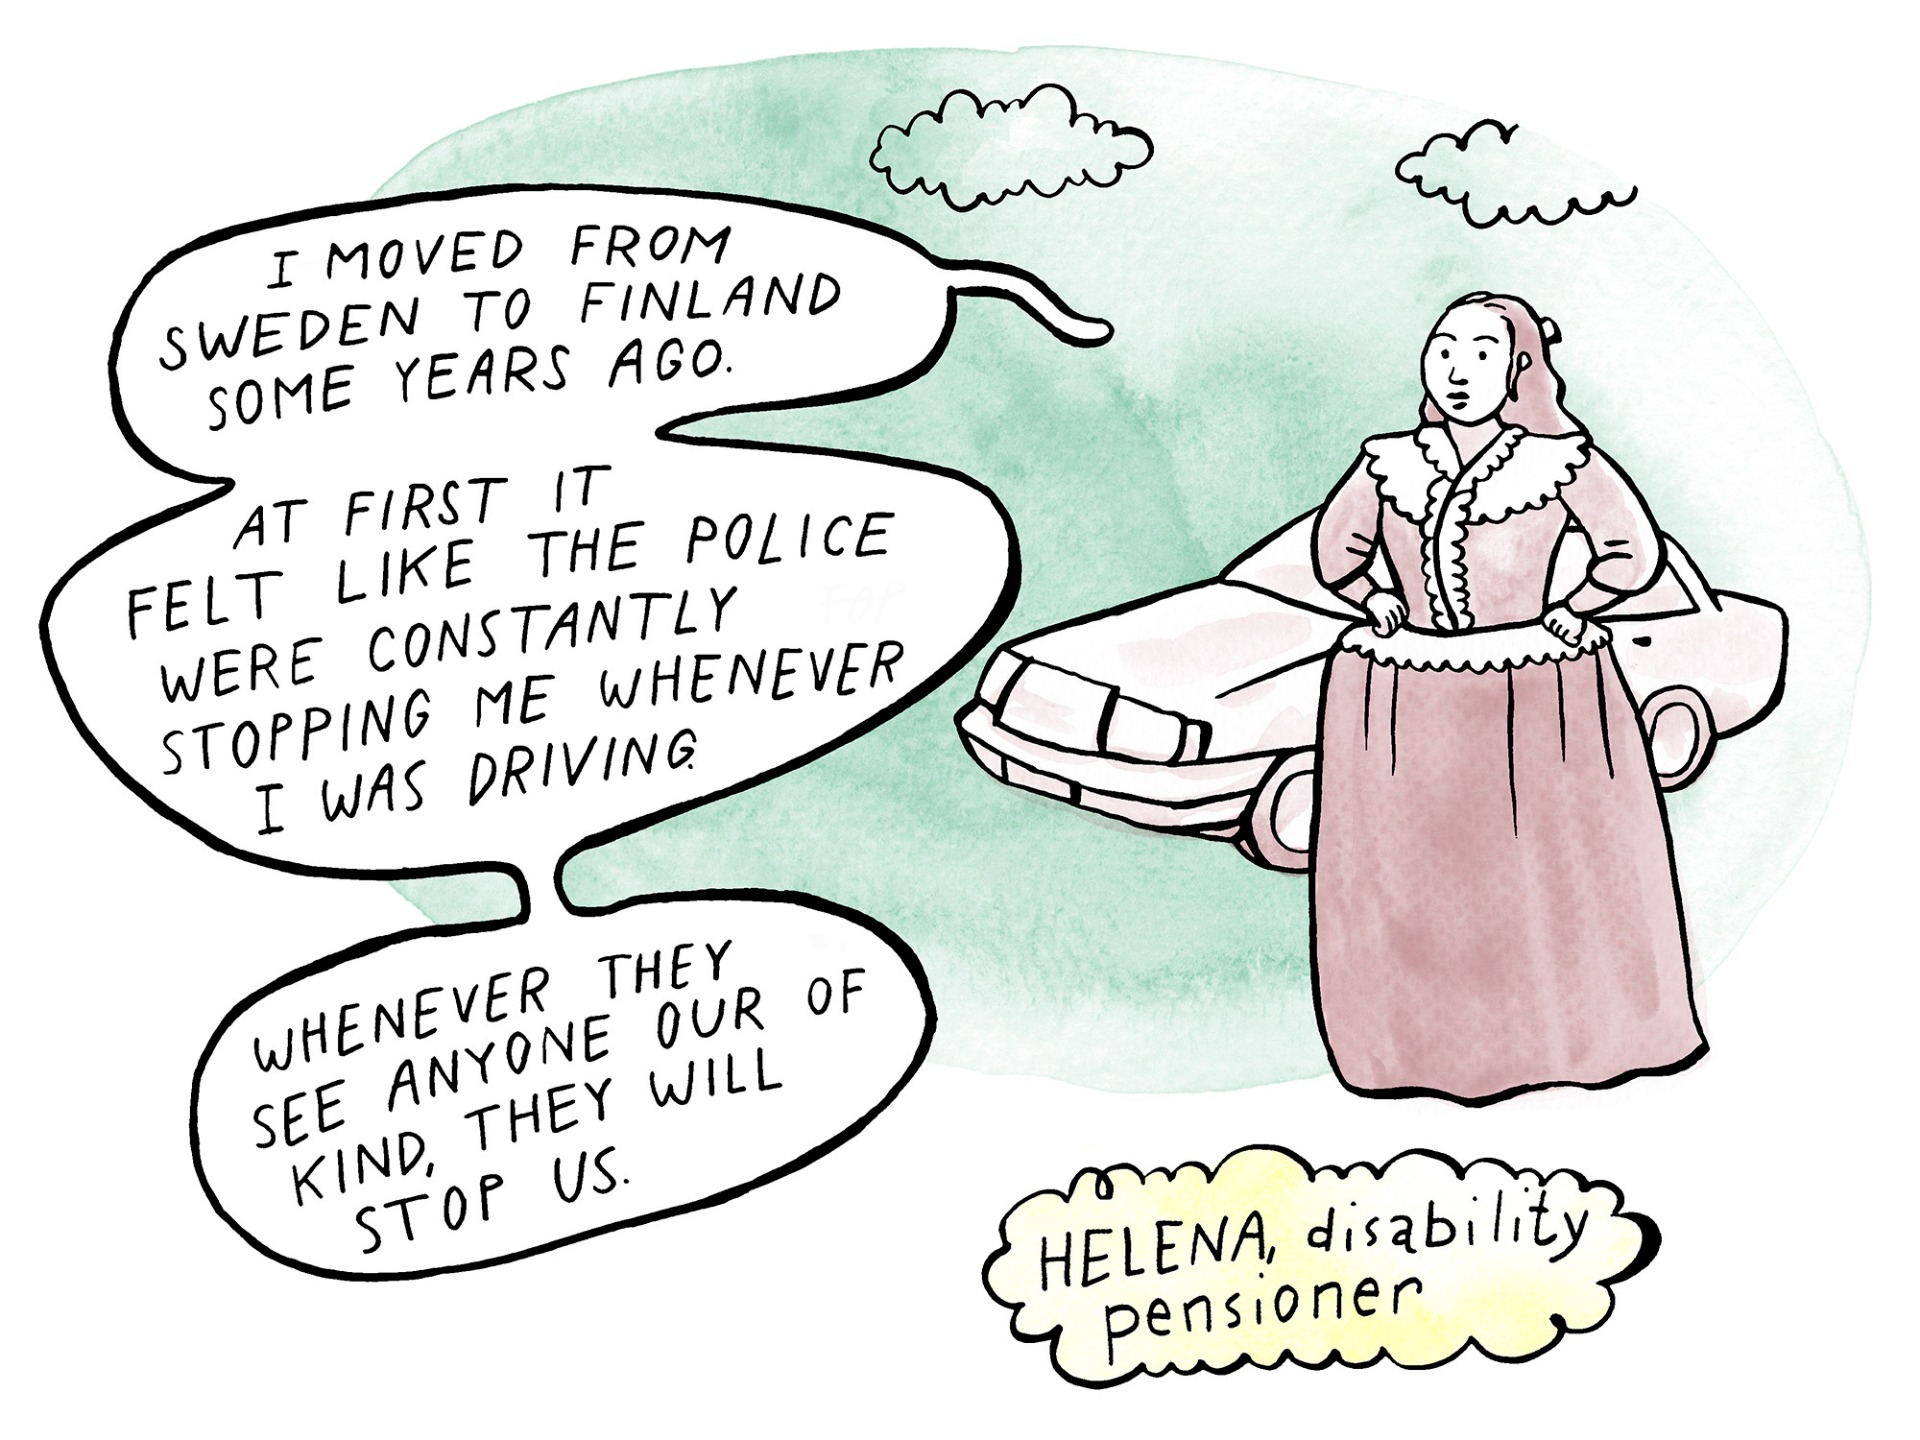 I MOVED FROM
SWEDEN TO FINLAND
SOME YEARS AGO.
AT FIRST IT
FELT LIKE THE POLICE
WERE CONSTANTLY
STOPPING ME WHENEVER
I WAS DRIVING.
WHENEVER THEY
SEE ANYONE OUR OF
KIND, THEY WILL
STOP US.
HELENA, disability
pensioner